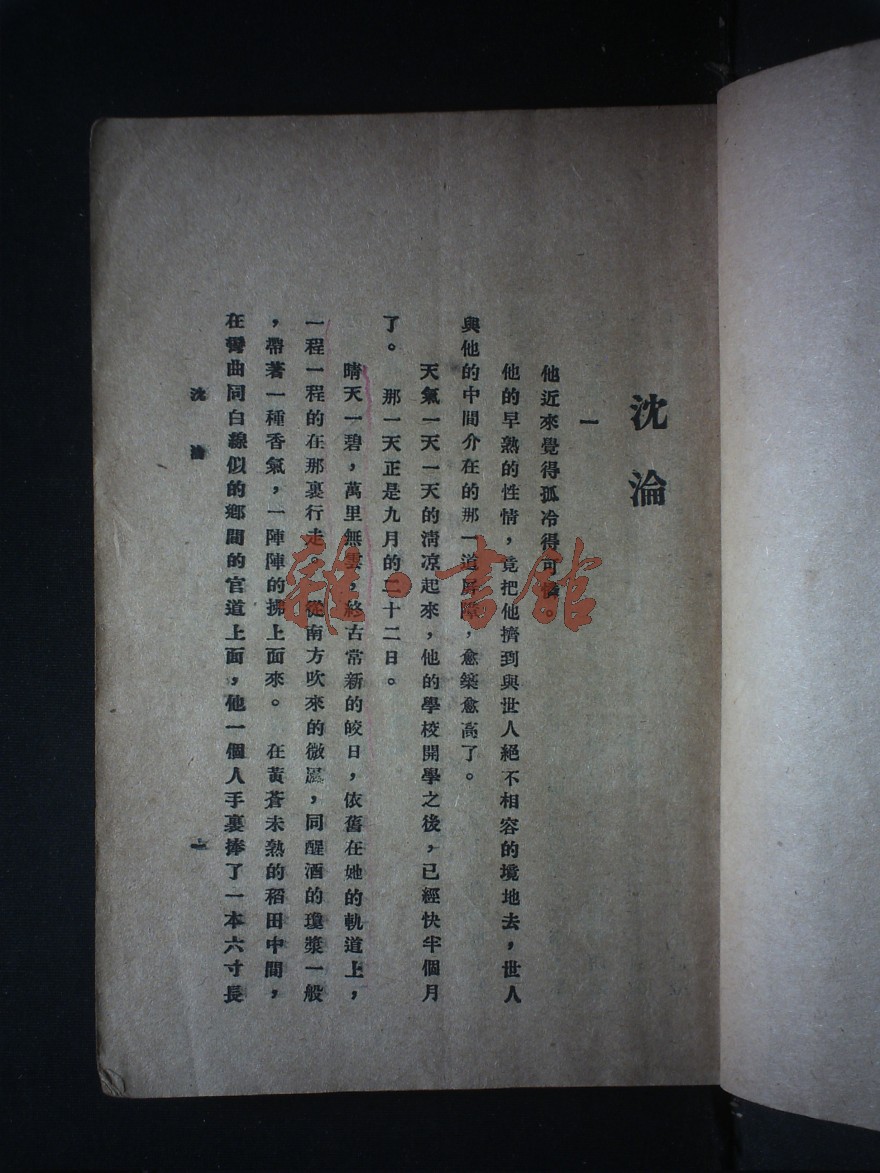 沈淪
一
他近來覺得孤冷得可憐。
他的早熟的性情，竟把他擠到與世人絕不相容的境地去，世人
與他的中間介在的那一道屏障，愈築愈高了。
天氣一天一天的淸凉起來，他的學校開學之後，已經快半個月
了。 那一天正是九月的二十二日。
晴天一碧，萬里無雲，終古常新的皎日，依舊在她的軌道上，
一程一程的在那裏行走。從南方吹來的微風，同醒酒的瓊漿一般
，帶著一種香氣，一陣陣的拂上面來。 在黃蒼未熟的稻田中間，
在彎曲同白線似的鄉間的官道上面，他一個人手裏捧了一本六寸長
沈淪
一
雜·書館